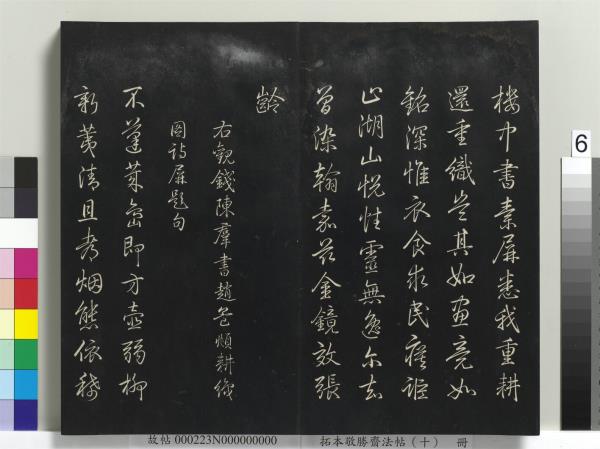 樓中書素屏志我重耕
還重織豈其如畫竟如
銘深惟衣食求民瘼詎
止湖山悅性靈無逸尔去
曾染翰嘉茲金鏡效張
齡
右觀錢陳羣書趙孟頫耕織
圖詩屏題句
不蓬萊島即方壺弱柳
新荑清且都烟態依稀
6
故帖 000223N000000000
拓本敬勝齋法帖（十） 冊